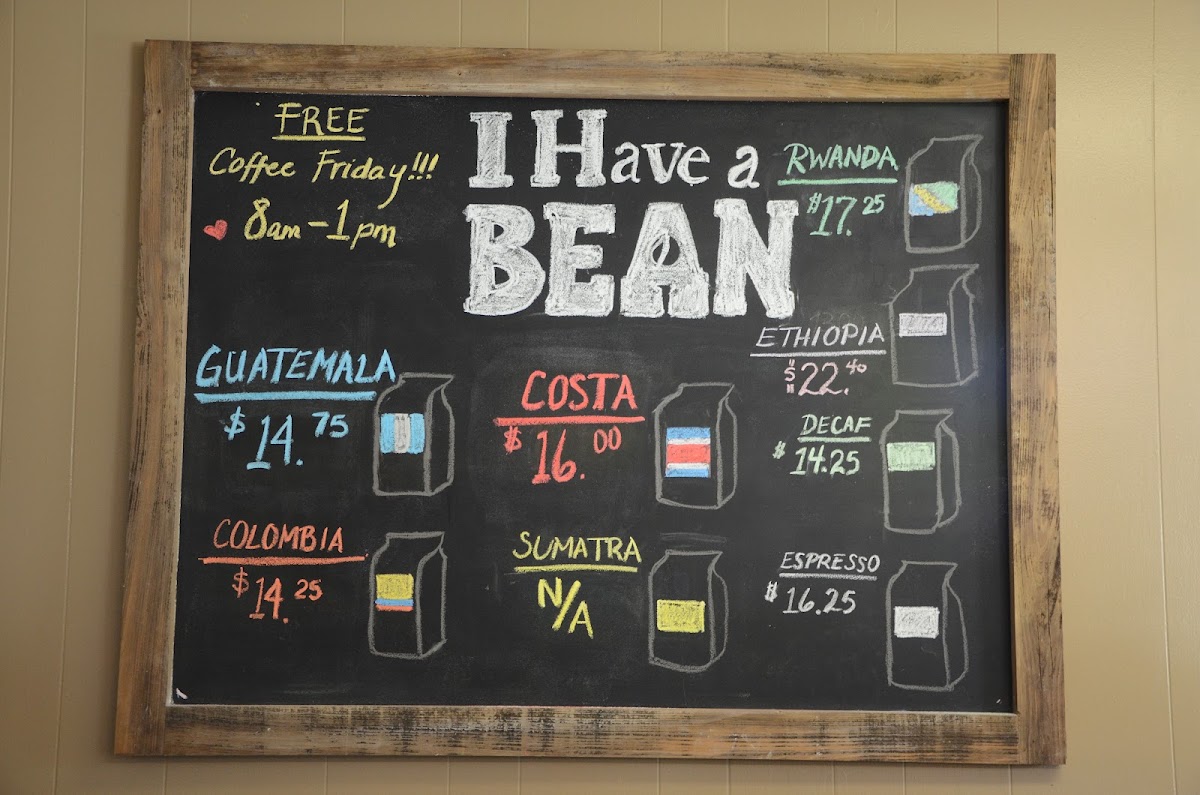 FREE
Coffee Friday!!!
8am-1pm
I Have a
BEAN
RWANDA
$17.25
ETHIOPIA
$22.40
GUATEMALA
$14.75
COSTA
$16.00
DECAF
$14.25
COLOMBIA
$14.25
SUMATRA
N/A
ESPRESSO
$16.25